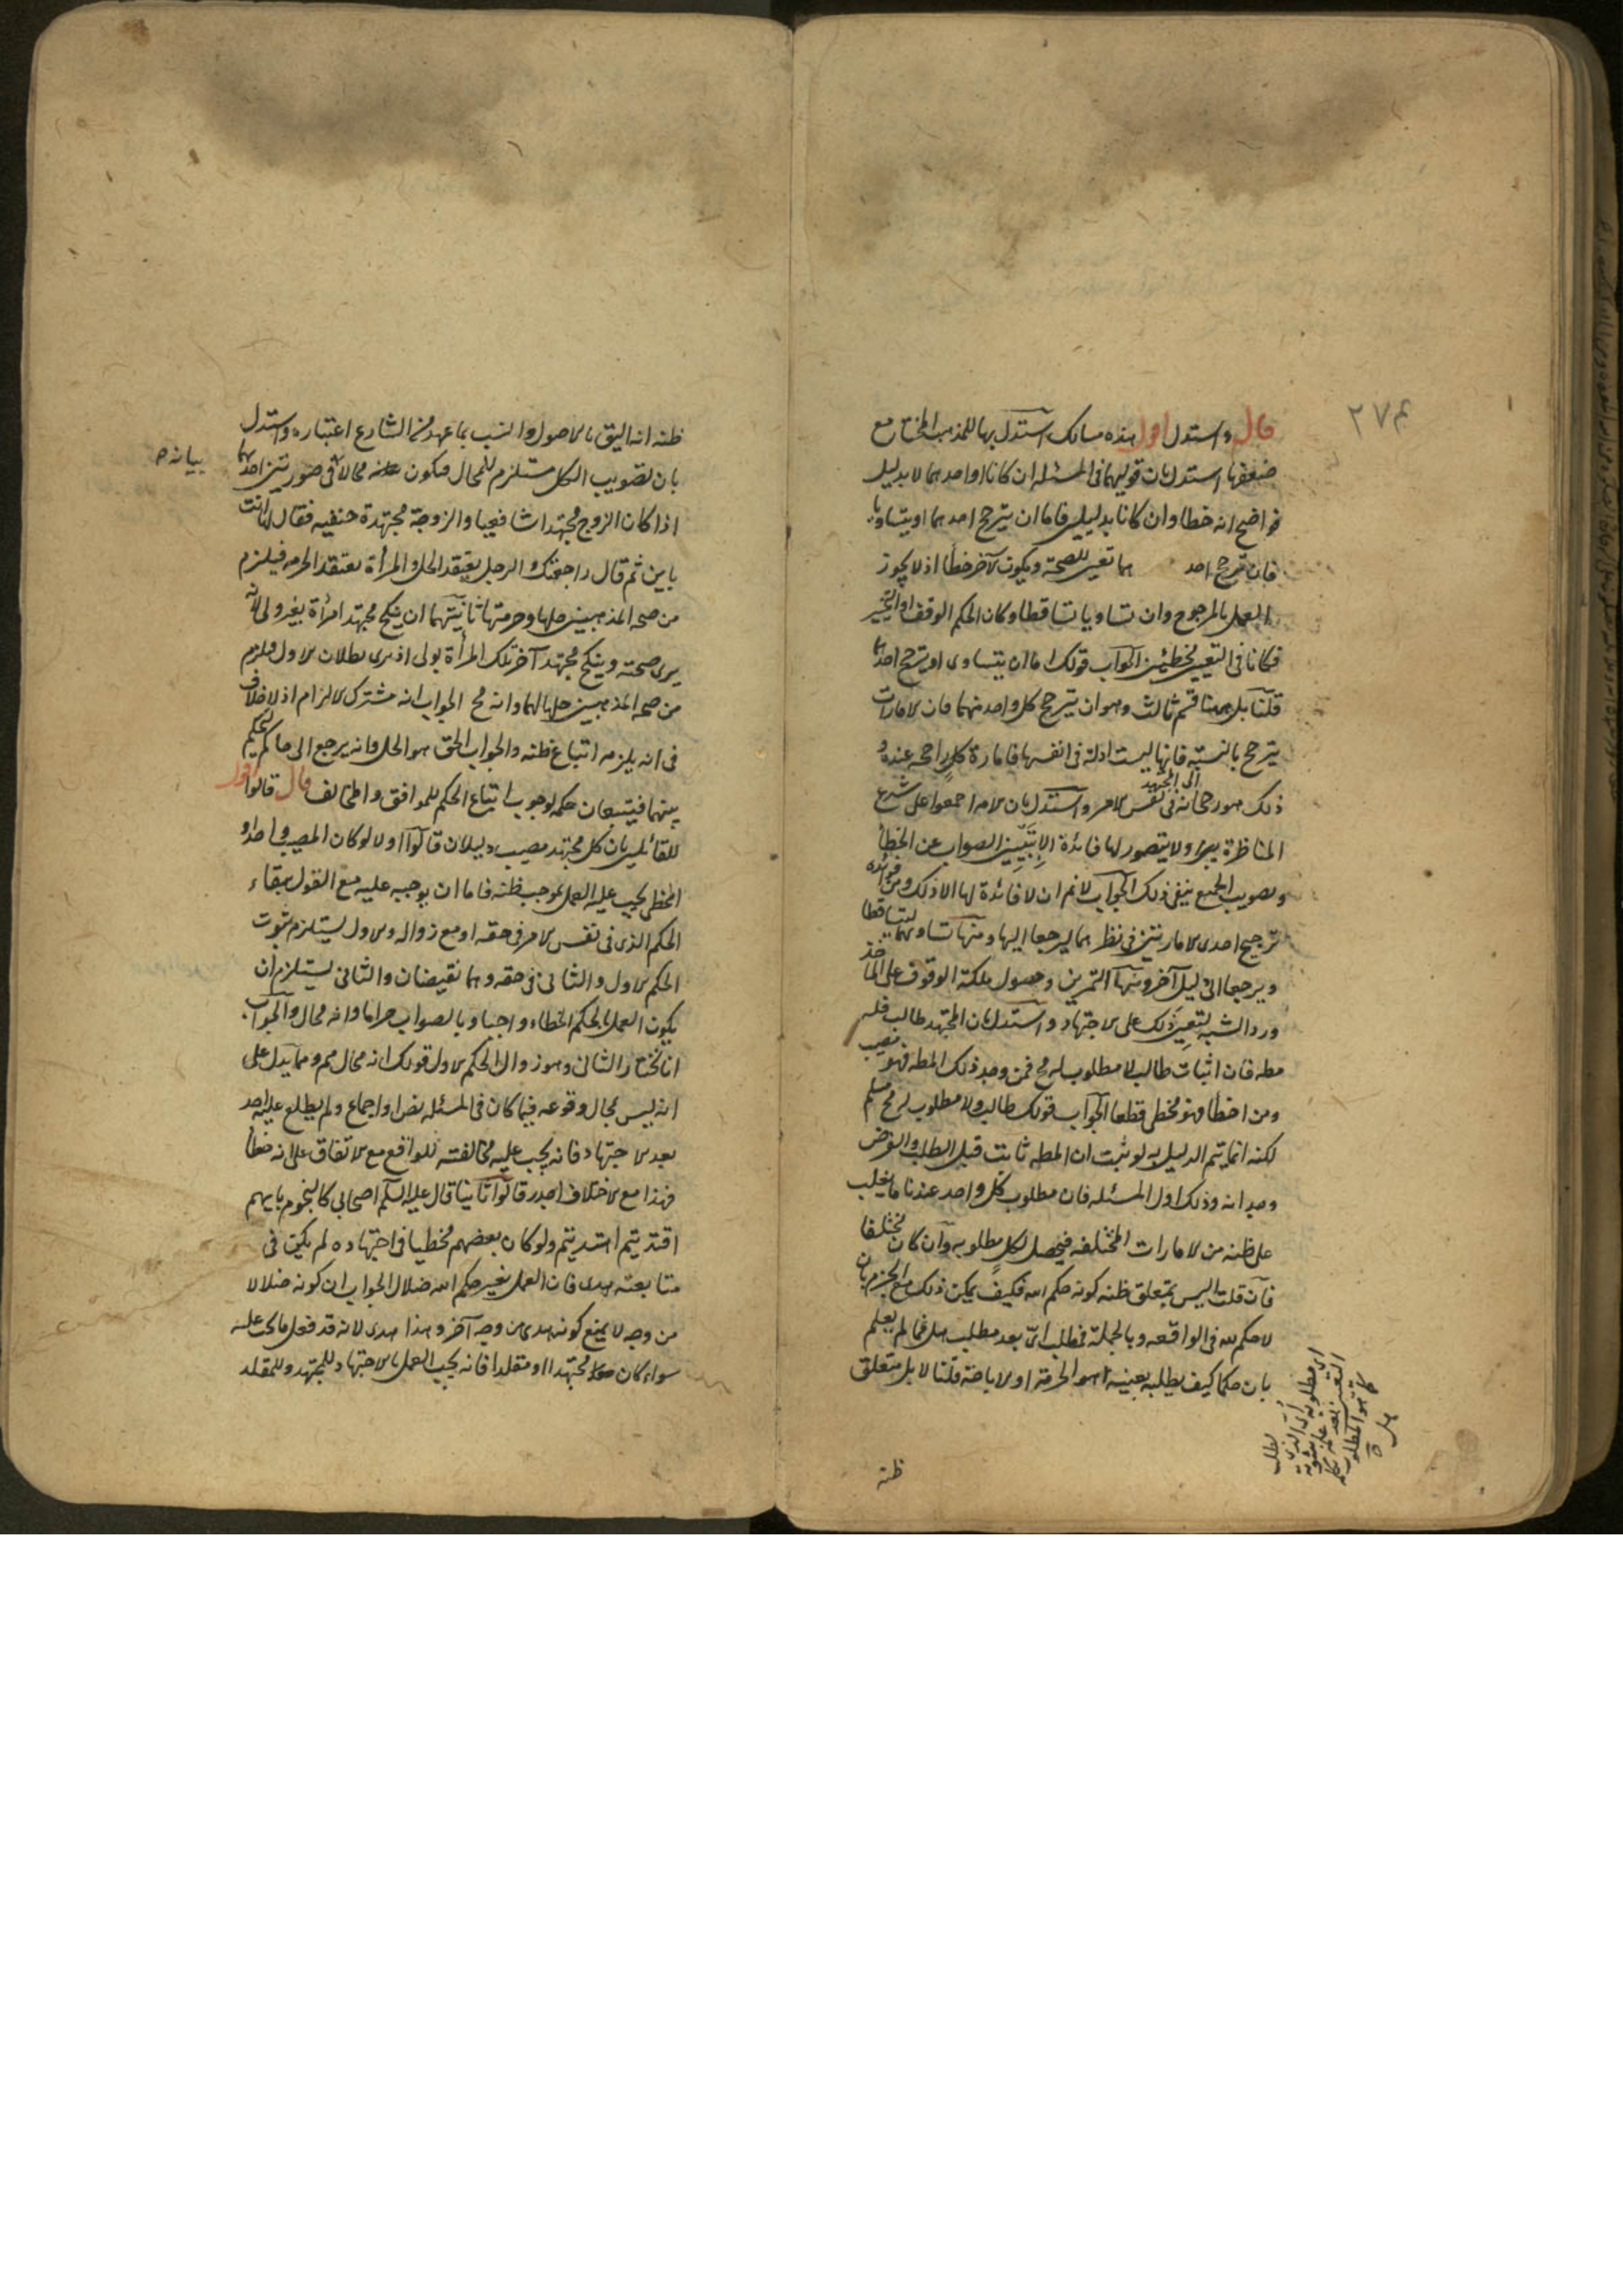 ٢٧٤
قال واستدل اقول هذه مسالك استدل بها للمذهب المختار مع
ضعفها استدل بان قوليهما فى المسئلة ان كانا او احدهما لا بدليل
فواضح انه خطا وان كانا بدليلين فاما ان يترجح احدهما او يتساويا
فان ترجح احد هما تعين للصحة ويكون الآخر خطأ اذ لا يجوز
العمل بالمرجوح وان تساويا تساقطا وكان الحكم الوقف او التخيير
فكانا فى التعيين مخطئين الجواب قولك اما ان يتساوى او ترجح احدهما
قلنا بل ههنا قسم ثالث وهو ان يترجح كل واحد منهما فان الامارات
يترجح بالنسبة فانها ليست ادلة فى انفسها فامارة كل راجحة عنده و
ذلك هو رجحانه فى نفس الامر واستدل بان الامة اجمعوا على شرع
الى المجتهد
المناظرة ولا يتصور لها فائدة الا تبيين الصواب عن الخطأ
وتصويب الجميع ينفى ذلك الجواب لانم ان لا فائدة لها الا ذلك ومن فوائده
ترجيح احدى الامارتين فى نظرهما ليرجعا اليها ومنها تساويهما ليتساقطا
ويرجعا الى دليل آخر ومنها التمرين وحصول ملكة الوقوف على المآخذ
ورد الشبه لتعين ذلك على الاجتهاد واستدل بان المجتهد طالب فله
مطه فان اثبات طالب لا مطلوب له مح فمن وجد ذلك المطه فهو مصيب
ومن اخطأ فهو مخطى قطعا الجواب قولك طالب ولا مطلوب له مح مسلم
لكنه انما يتم الدليل به لو ثبت ان المطه ثابت قبل الطلب والغرض
وجدانه وذلك اول المسئله فان مطلوب كل واحد عندنا ما يغلب
على ظنه من الامارات المختلفه فيحصل لكل مطلوبه وان كان مختلفا
فان قلت اليس يتعلق ظنه كونه حكم الله فكيف يمكن ذلك مع الجزم بان
لا حكم لله فى الواقعه وبالجملة فطلب اىّ بعد مطلب هل فما لم يعلم
بان حكما كيف يطلبه بعينه اهو الحرمة او الاباحة قلنا لا بل متعلق
ظنه
ظنه انه اليق بالاصول وانسب بما عهد من الشارع اعتباره واستدل
بان تصويب الكل مستلزم للمحال فيكون محالا فى صورتين احدهما
بيانه
اذا كان الزوج مجتهدا شافعيا والزوجة مجتهدة حنفيه فقال لها انت
باين ثم قال راجعتك والرجل يعتقد الحل والمرأة تعتقد الحرمه فيلزم
من صحة المذهبين حلها وحرمتها ثانيتهما ان ينكح مجتهد امرأة بغير ولى لانه
يرى صحته وينكح مجتهد آخر تلك المرأة بولى اذ يرى بطلان الاول فيلزم
من صحة المذهبين حلها لهما وانه مح الجواب انه مشترك الالزام اذ لا خلاف
فى انه يلزمه اتباع ظنه والجواب الحق هو الحل وانه يرجع الى حاكم ليحكم
بينهما فيتبعان حكمه لوجوب اتباع الحكم للموافق والمخالف قال قالوا اقول
للقائلين بان كل مجتهد مصيب دليلان قالوا اولا لو كان المصيب واحدا و
المخطى يجب عليه العمل بموجب ظنه فاما ان يوجبه عليه مع القول ببقاء
الحكم الذى فى نفس الامر فى حقه او مع زواله والاول يستلزم ثبوت
الحكم الاول والثانى فى حقه وهما نقيضان والثانى يستلزم ان
يكون العمل بالحكم الخطاء واجبا وبالصواب حراما وانه محال والجواب
انا نختار الثانى وهو زوال الحكم الاول قولك انه محال مم ومما يدل على
انه ليس بمحال وقوعه فيما كان فى المسئلة نص او اجماع ولم يطلع عليه احد
بعد الاجتهاد فانه يجب عليه مخالفته للواقع مع الاتفاق على انه خطأ
فهذا مع الاختلاف اجدر قالوا ثانيا قال عليه السلم اصحابى كالنجوم بايهم
اقتديتم اهتديتم ولو كان بعضهم مخطيا فى اجتهاده لم يكن فى
متابعته هدى فان العمل بغير حكم الله ضلال الجواب ان كونه ضلالا
من وجه لا يمنع كونه هدى من وجه آخر وهذا هدى لانه قد فعل ما يجب عليه
سواء كان مجتهدا او مقلدا فانه يجب العمل بالاجتهاد للمجتهد وللمقلد